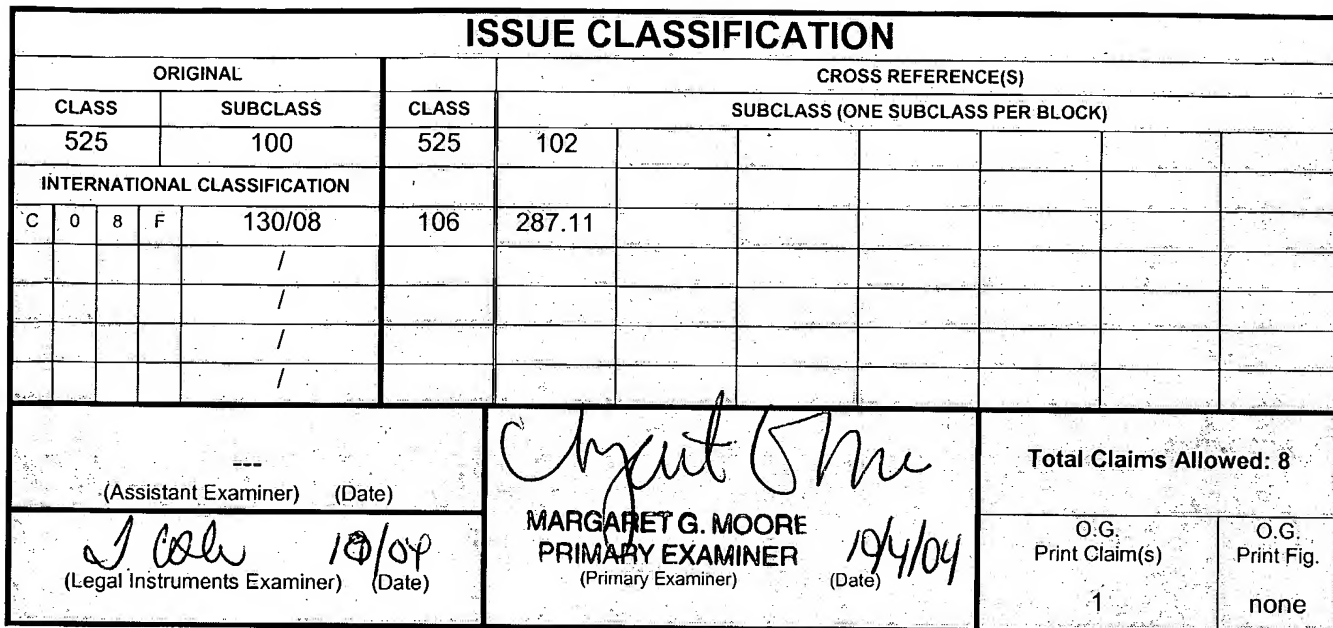 ISSUE CLASSIFICATION
ORIGINAL CROSS REFERENCE(S)
CLASS SUBCLASS CLASS SUBCLASS (ONE SUBCLASS PER BLOCK)
525 100 525 102
INTERNATIONAL CLASSIFICATION
C 0 8 F 130/08 106 287.11
/
/
/
/
---
(Assistant Examiner) (Date)
(Legal Instruments Examiner) (Date)
MARGARET G. MOORE
PRIMARY EXAMINER 10/4/04
(Primary Examiner) (Date)
Total Claims Allowed: 8
O.G. O.G.
Print Claim(s) Print Fig.
1 none